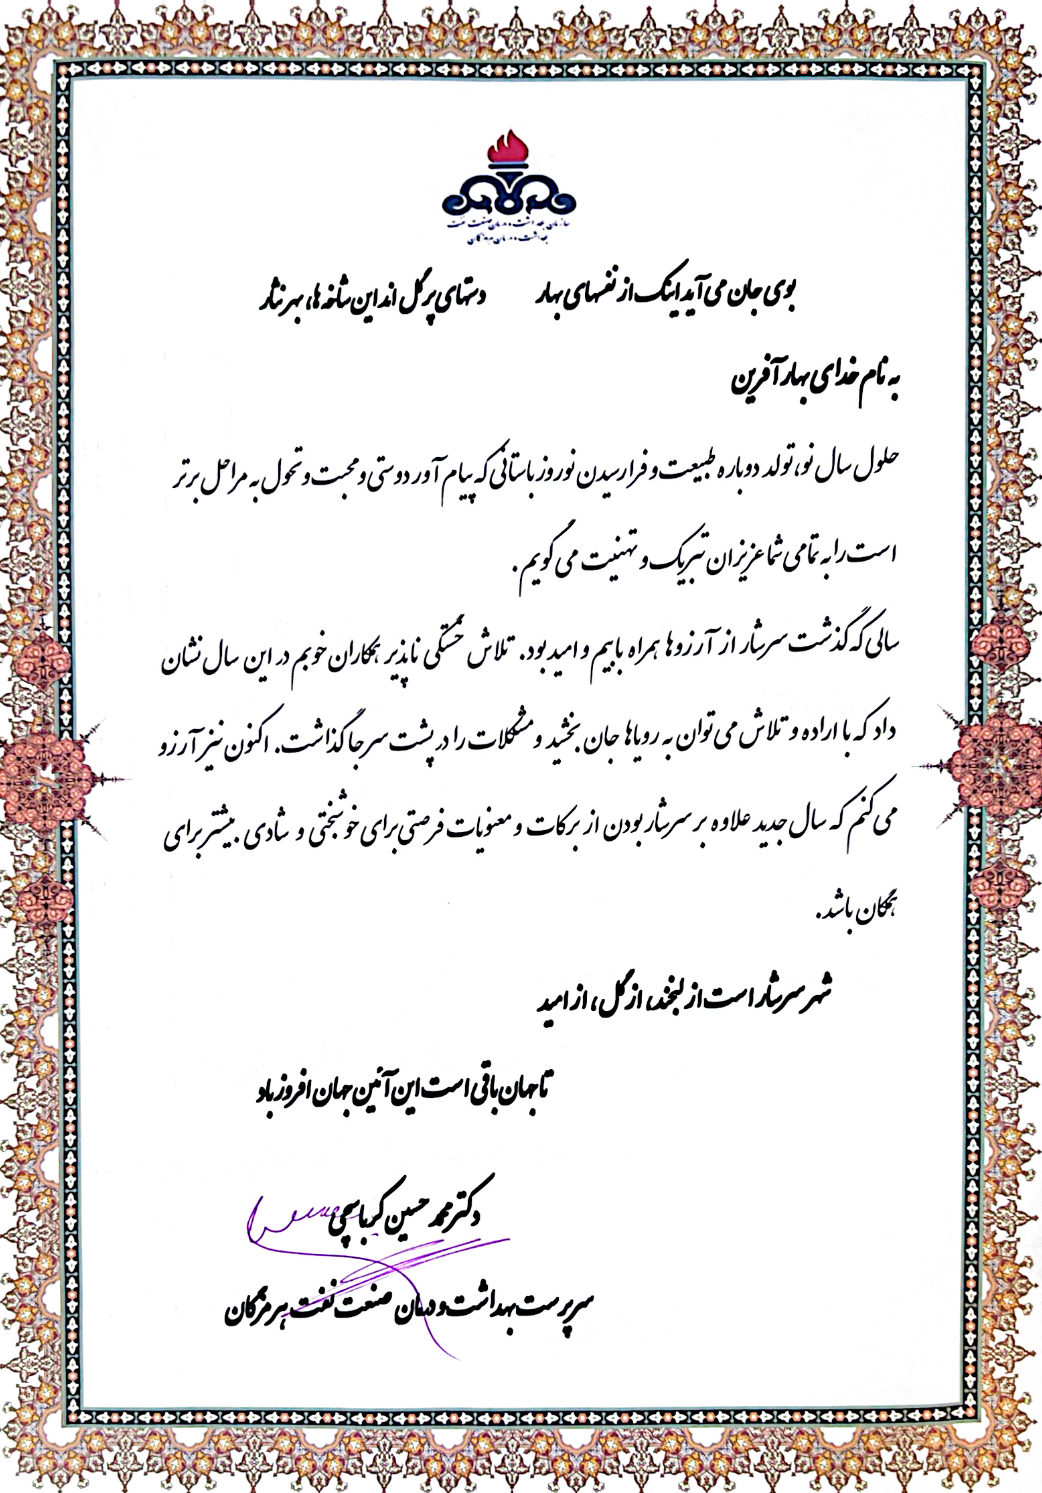 سازمان بهداشت و درمان صنعت نفت
بهداشت و درمان هرمزگان
بوی جان می آید اینک از نفسهای بهار دستهای پر گل اند این شاخه ها، بهر نثار
به نام خدای بهار آفرین
حلول سال نو، تولد دوباره طبیعت و فرا رسیدن نوروز باستانی که پیام آور دوستی و محبت و تحول به مراحل برتر
است را به تمامی شما عزیزان تبریک و تهنیت می گویم .
سالی که گذشت سرشار از آرزوها همراه با بیم و امید بود. تلاش خستگی ناپذیر همکاران خوبم در این سال نشان
داد که با اراده و تلاش می توان به رویاها جان بخشید و مشکلات را در پشت سر جا گذاشت. اکنون نیز آرزو
می کنم که سال جدید علاوه بر سرشار بودن از برکات و معنویات فرصتی برای خوشبختی و شادی بیشتر برای
همگان باشد.
شهر سرشار است از لبخند، از گل، از امید
تا جهان باقی است این آئین جهان افروز باد
دکتر محمد حسین کرباسچی
سرپرست بهداشت و درمان صنعت نفت هرمزگان